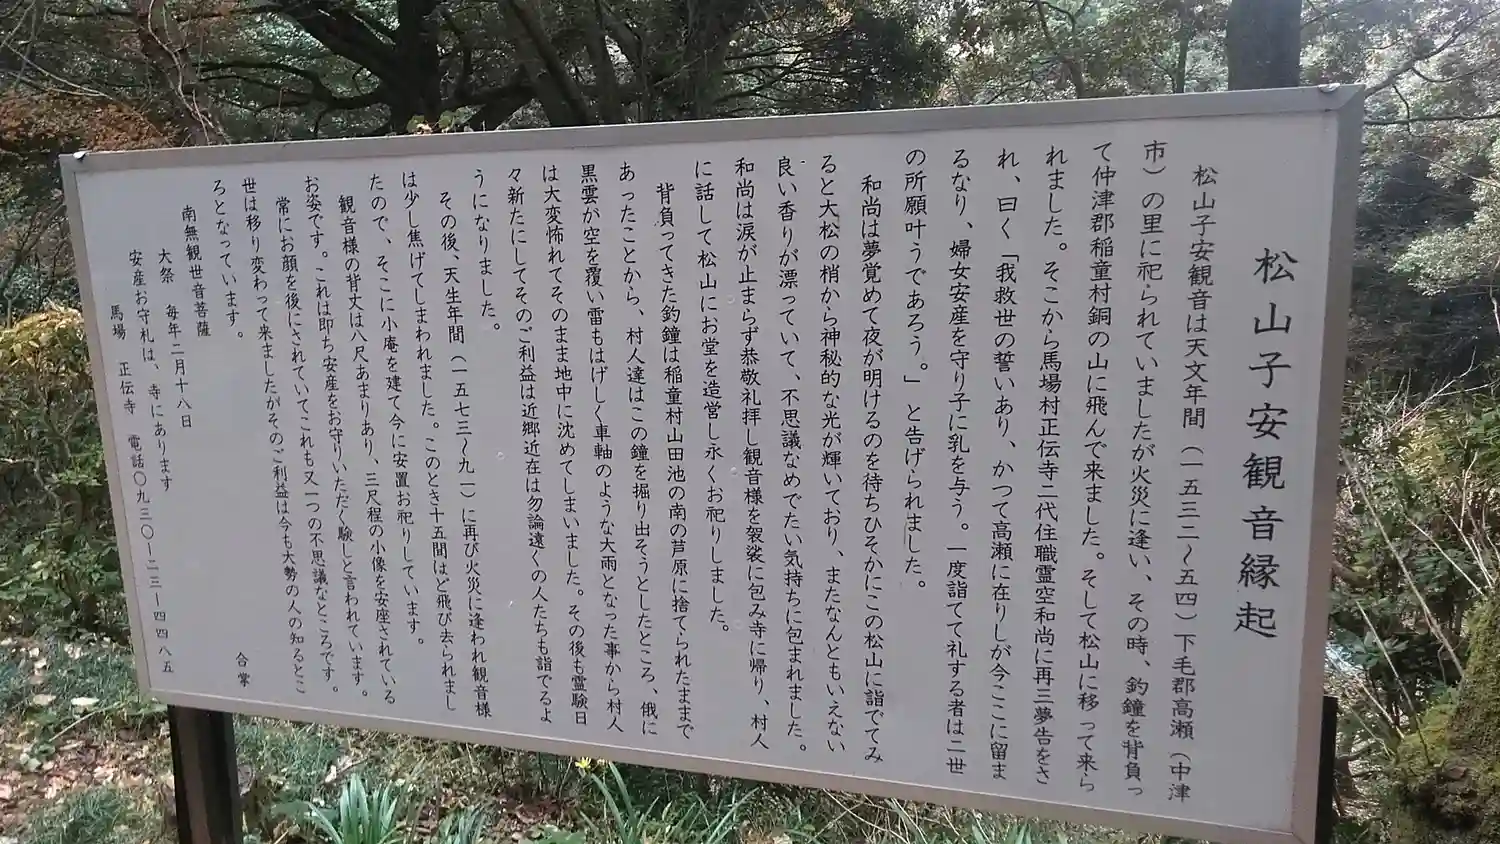 松山子安観音縁起
松山子安観音は天文年間（一五三二～五四）下毛郡高瀬（中津
市）の里に祀られていましたが火災に逢い、その時、釣鐘を背負っ
て仲津郡稲童村銅の山に飛んで来ました。そして松山に移って来ら
れました。そこから馬場村正伝寺二代住職霊空和尚に再三夢告をさ
れ、曰く「我救世の誓いあり、かつて高瀬に在りしが今ここに留ま
るなり、婦女安産を守り子に乳を与う。一度詣てて礼する者は二世
の所願叶うであろう。」と告げられました。
和尚は夢覚めて夜が明けるのを待ちひそかにこの松山に詣でてみ
ると大松の梢から神秘的な光が輝いており、またなんともいえない
良い香りが漂っていて、不思議なめでたい気持ちに包まれました。
和尚は涙が止まらず恭敬礼拝し観音様を袈裟に包み寺に帰り、村人
に話して松山にお堂を造営し永くお祀りしました。
背負ってきた釣鐘は稲童村山田池の南の芦原に捨てられたままで
あったことから、村人達はこの鐘を掘り出そうとしたところ、俄に
黒雲が空を覆い雷もはげしく車軸のような大雨となった事から村人
は大変怖れてそのまま地中に沈めてしまいました。その後も霊験日
々新たにしてそのご利益は近郷近在は勿論遠くの人たちも詣でるよ
うになりました。
その後、天生年間（一五七三～九一）に再び火災に逢われ観音様
は少し焦げてしまわれました。このとき十五間ほど飛び去られまし
たので、そこに小庵を建て今に安置お祀りしています。
観音様の背丈は八尺あまりあり、三尺程の小像を安座されている
お姿です。これは即ち安産をお守りいただく験しと言われています。
常にお顔を後にされていてこれも又一つの不思議なところです。
世は移り変わって来ましたがそのご利益は今も大勢の人の知るとこ
ろとなっています。
合掌
南無観世音菩薩
大祭　毎年二月十八日
安産お守札は、寺にあります
馬場　正伝寺　電話〇九三〇ー二三ー四四八五